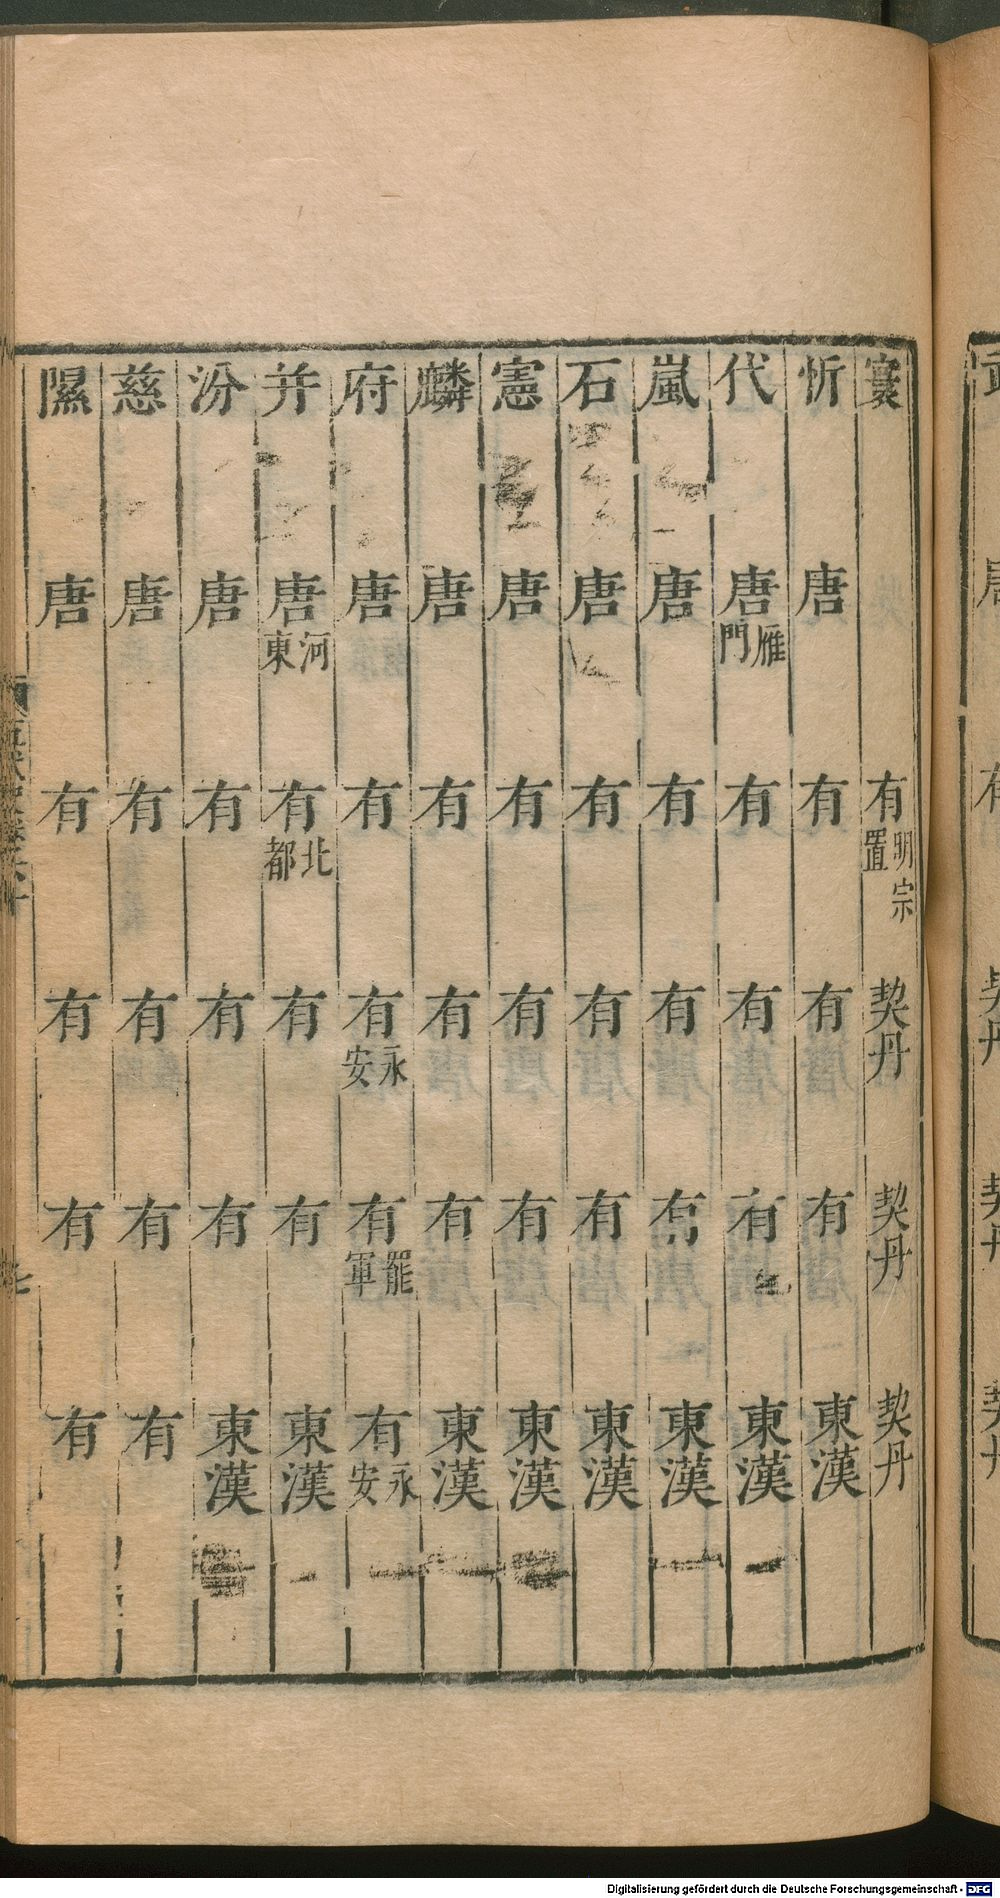 寰 有 明宗置 契丹 契丹 契丹
忻 唐 有 有 有 東漢
代 唐 雁門 有 有 有 東漢
嵐 唐 有 有 有 東漢
石 唐 有 有 有 東漢
憲 唐 有 有 有 東漢
麟 唐 有 有 有 東漢
府 唐 有 有 永安 有 罷軍 有 永安
并 唐 河東 有 北都 有 有 東漢
汾 唐 有 有 有 東漢
慈 唐 有 有 有 有
隰 唐 有 有 有 有
Digitalisierung gefördert durch die Deutsche Forschungsgemeinschaft - DFG